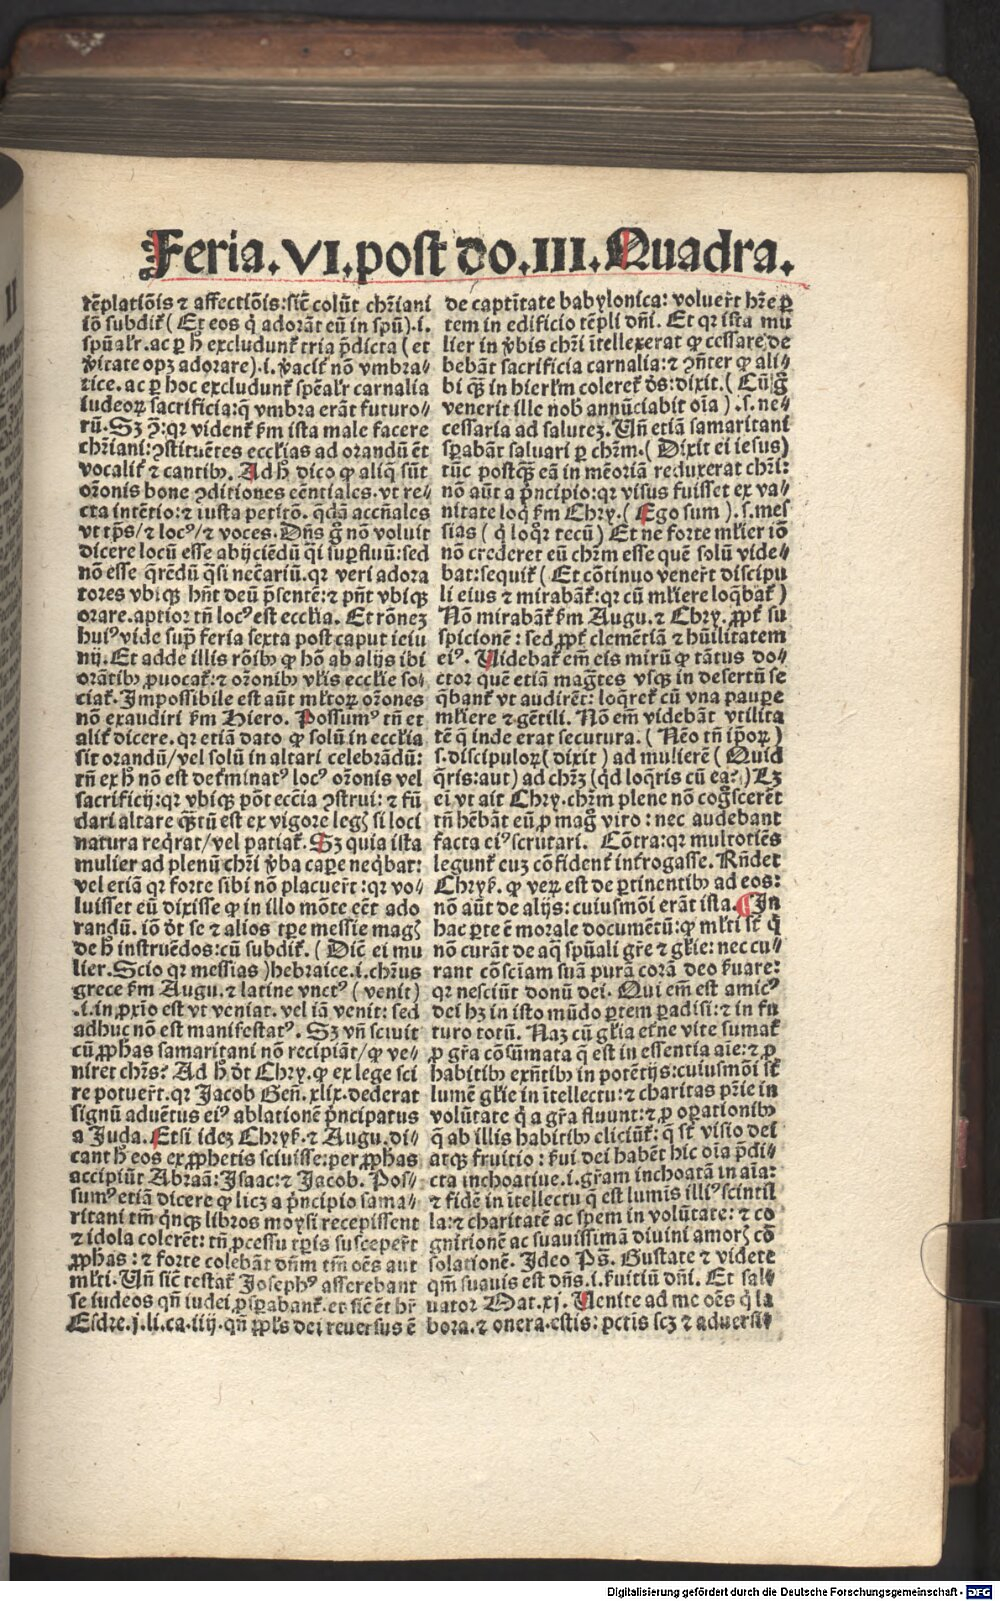 Feria. VI. post do. III. Quadra.
tēplatiōis ⁊ affectiōis: sic̄ colūt chr̄iani
iō subdit̄ (Et eos q̇ adorāt eū in spū) .i.
spūalr̄. ac ꝑ h̄ excludunt̄ tria p̄dicta (et
v̄itate opꝫ adorare) .i. v̄acit̄ nō vmbra⸗
tice. ac ꝑ hoc excludunt̄ spēalr̄ carnalia
iudeoꝝ sacrificia: q̄ vmbra erāt futuro⸗
rū. Sꝫ ꝯ̄: qr vident̄ km̄ ista male facere
chr̄iani: ꝯstituētes eccl̄ias ad orandū et
vocalit̄ ⁊ cantibꝰ. Ad h̄ dico ꝙ aliq̄ sūt
or̄onis bone ꝯditiones eēntiales. vt re⸗
cta intētio: ⁊ iusta petitō. qdā accn̄ales
vt tp̄s/ ⁊ locꝰ/ ⁊ voces. Dn̄s g̊ nō voluit
dicere locū esse abijciēdū q̇i supfluū: sed
nō esse q̄rēdū q̇si nec̄ariū. qr veri adora
tores vbiqꝫ hn̄t deū p̄sentē: ⁊ pn̄t vbiqꝫ
orare. aptior tn̄ locꝰ est eccl̄ia. Et rōneꝫ
huiꝰ vide supͣ feria sexta post caput ieiu
nij. Et adde illis rōibꝰ ꝙ hō ab alijs ibi
orātibꝰ ꝓuocat̄: ⁊ or̄onibꝰ vl̄is eccl̄ie so⸗
ciat̄. Impossibile est aūt ml̄toꝝ or̄ones
nō exaudiri km̄ Hiero. Possumꝰ tn̄ et
alit̄ dicere. qr etiā dato ꝙ solū in eccl̄ia
sit orandū/ vel solū in altari celebrādū:
tn̄ ex h̄ nō est det̄minatꝰ locꝰ or̄onis vel
sacrificij: qr vbiqꝫ pōt ecc̄ia ꝯstrui: ⁊ fū
dari altare q̄tū est ex vigore legꝭ si loci
natura req̇rat/ vel patiat̄. Sꝫ quia ista
mulier ad plenū chr̄i v̄ba caꝑe neq̇bat:
vel etiā qr forte sibi nō placuer̄t: qr vo⸗
luisset eū dixisse ꝙ in illo mōte eēt ado
randū. iō dt̄ se ⁊ alios tꝑe messie magꝭ
de h̄ instruēdos: cū subdit̄. (Dic̄ ei mu
lier. Scio qr messias) hebraice .i. chr̄us
grece km̄ Augu. ⁊ latine vnctꝰ (venit)
.i. in ꝓxīo est vt veniat. vel iā venit: sed
adhuc nō est manifestatꝰ. Sꝫ vn̄ sciuit
cū ꝓph̄as samaritani nō recipiāt/ ꝙ ve⸗
niret chr̄s? Ad h̄ dt̄ Chry. ꝙ ex lege sci
re potuer̄t. qr Jacob Gen̄. xlix. dederat
signū aduētus eiꝰ ablationē p̄ncipatus
a Juda. Etsi ideꝫ Chryf. ⁊ Augu. di⸗
cant h̄ eos ex ꝓphetis sciuisse: per ꝓph̄as
accipiūt Abraā: Isaac: ⁊ Jacob. Pos⸗
sumꝰ etiā dicere ꝙ licꝫ a p̄ncipio sama⸗
ritani tm̄ q̇nqꝫ libros moysi recepissent
⁊ idola colerēt: tn̄ ꝓcessu tꝑis susceper̄t
ꝓph̄as: ⁊ forte colebāt dn̄m tm̄ oēs aut
ml̄ti. Un̄ sic̄ testat̄ Josephꝰ asserebant
se iudeos qn̄ iudei ꝓsꝑabant̄. et sic̄ ēt hr̄
Esdre. j. li. ca. iiij. qn̄ ppl̄s dei reuersus ē
de captītate babylonica: voluer̄t hr̄e ꝑ
tem in edificio tēpli dn̄i. Et qr ista mu
lier in v̄bis chr̄i ītellexerat ꝙ cessare de
bebāt sacrificia carnalia: ⁊ ꝯn̄ter ꝙ ali⸗
bi q̄ in hierl̄m coleret̄ dꝰs: dixit. (Cū g̊
venerit ille nob̄ annūciabit oīa) .s. ne⸗
cessaria ad saluteꝫ. Un̄ etiā samaritani
sꝑabāt saluari ꝑ chr̄m. (Dixit ei iesus)
tūc postqꝫ eā in mēoriā reduxerat chr̄i:
nō aūt a p̄ncipio: qr visus fuisset ex va⸗
nitate loq̇ km̄ Chry. (Ego sum) .s. mes
sias (q̇ loq̇r tecū) Et ne forte ml̄ier iō
nō crederet eū chr̄m esse quē solū vide⸗
bat: sequit̄ (Et cōtinuo vener̄t discipu
li eius ⁊ mirabāt̄: qr cū ml̄iere loq̇bat̄)
Nō mirabāt̄ km̄ Augu. ⁊ Chry. ꝓpt̄ su
spicionē: sed ꝓpt̄ clementiā ⁊ hūilitatem
eiꝰ. Videbat̄ em̄ eis mirū ꝙ tātus do⸗
ctor quē etiā magn̄tes vsqꝫ in desertū se
q̇bant̄ vt audirēt: loq̇ret̄ cū vna paupe
ml̄iere ⁊ gētili. Nō em̄ videbāt vtilita
tē q̄ inde erat secutura. (Nēo tn̄ ip̄oꝝ)
.s. discipuloꝝ (dixit) ad mulierē (Quid
q̄ris: aut) ad chr̄ꝫ (q̇d loq̇ris cū ea?) Lꝫ
ei vt ait Chry. chr̄m plene nō cog̊scerēt
tn̄ hēbāt eū ꝓ mag̊ viro: nec audebant
facta eiꝰ scrutari. Cōtra: qr multotiēs
legunt̄ cuꝫ cōfident̄ int̄rogasse. Rn̄det
Chryf. ꝙ veꝝ est de ꝑtinentibꝰ ad eos:
nō aūt de alijs: cuiusmōi erāt ista. ¶In
hac ꝑte ē morale documētū: ꝙ ml̄ti st̄ q̇
nō curāt de aq̄ spūali gr̄e ⁊ gl̄ie: nec cu⸗
rant cōsciam suā purā corā deo f̄uare:
qr nesciūt donū dei. Qui em̄ est amicꝰ
dei hꝫ in isto mūdo ꝑtem ꝑadisi: ⁊ in fu
turo totū. Naꝫ cū gl̄ia et̄ne vite sumat̄
ꝓ gr̄a cōsūmata q̄ est in essentia aīe: ⁊ ꝓ
habitibꝰ exn̄tibꝰ in potētijs: cuiusmōi st̄
lumē gl̄ie in ītellectu: ⁊ charitas pr̄ie in
volūtate q̇ a gr̄a fluunt: ⁊ ꝓ oꝑationibꝰ
q̄ ab illis habitibꝰ eliciūt̄: q̄ st̄ visio dei
atqꝫ fruitio: f̄ui dei habēt hic oīa p̄di⸗
cta inchoatiue .i. gr̄am inchoatā in aīa:
⁊ fidē in ītellectu q̄ est lumīs illiꝰ scintil
la: ⁊ charitatē ac spem in volūtate: ⁊ co
gnitionē ac suauissimā diuini amorꝭ cō
solationē. Ideo Ps̄. Gustate ⁊ videte
qm̄ suauis est dn̄s .i. f̄uitiū dn̄i. Et sal⸗
uator Mat. xj. Venite ad me oēs q̇ la
bora. ⁊ onera. estis: petis scꝫ ⁊ aduersi⸗
Digitalisierung gefördert durch die Deutsche Forschungsgemeinschaft - DFG